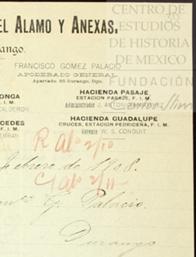 CENTRO DE
EL ALAMO Y ANEXAS.
ESTUDIOS
DE HISTORIA
DE MEXICO
ango.
FRANCISCO GOMEZ PALACIO
APODERADO GENERAL
Apartado 88 Durango, Dgo.
FUNDACIÓN
ONGA
F. I. M.
HACIENDA PASAJE
ESTACION PASAJE, F. I. M.
CEDES
F. I. M.
HACIENDA GUADALUPE
CRUCES, ESTACION PEDRICEÑA, F. I. M.
W. S. CONDUIT
R Ab° 2/10
Febrero de 1908.
C/ Ab° 2/11
Palacio.
Durango